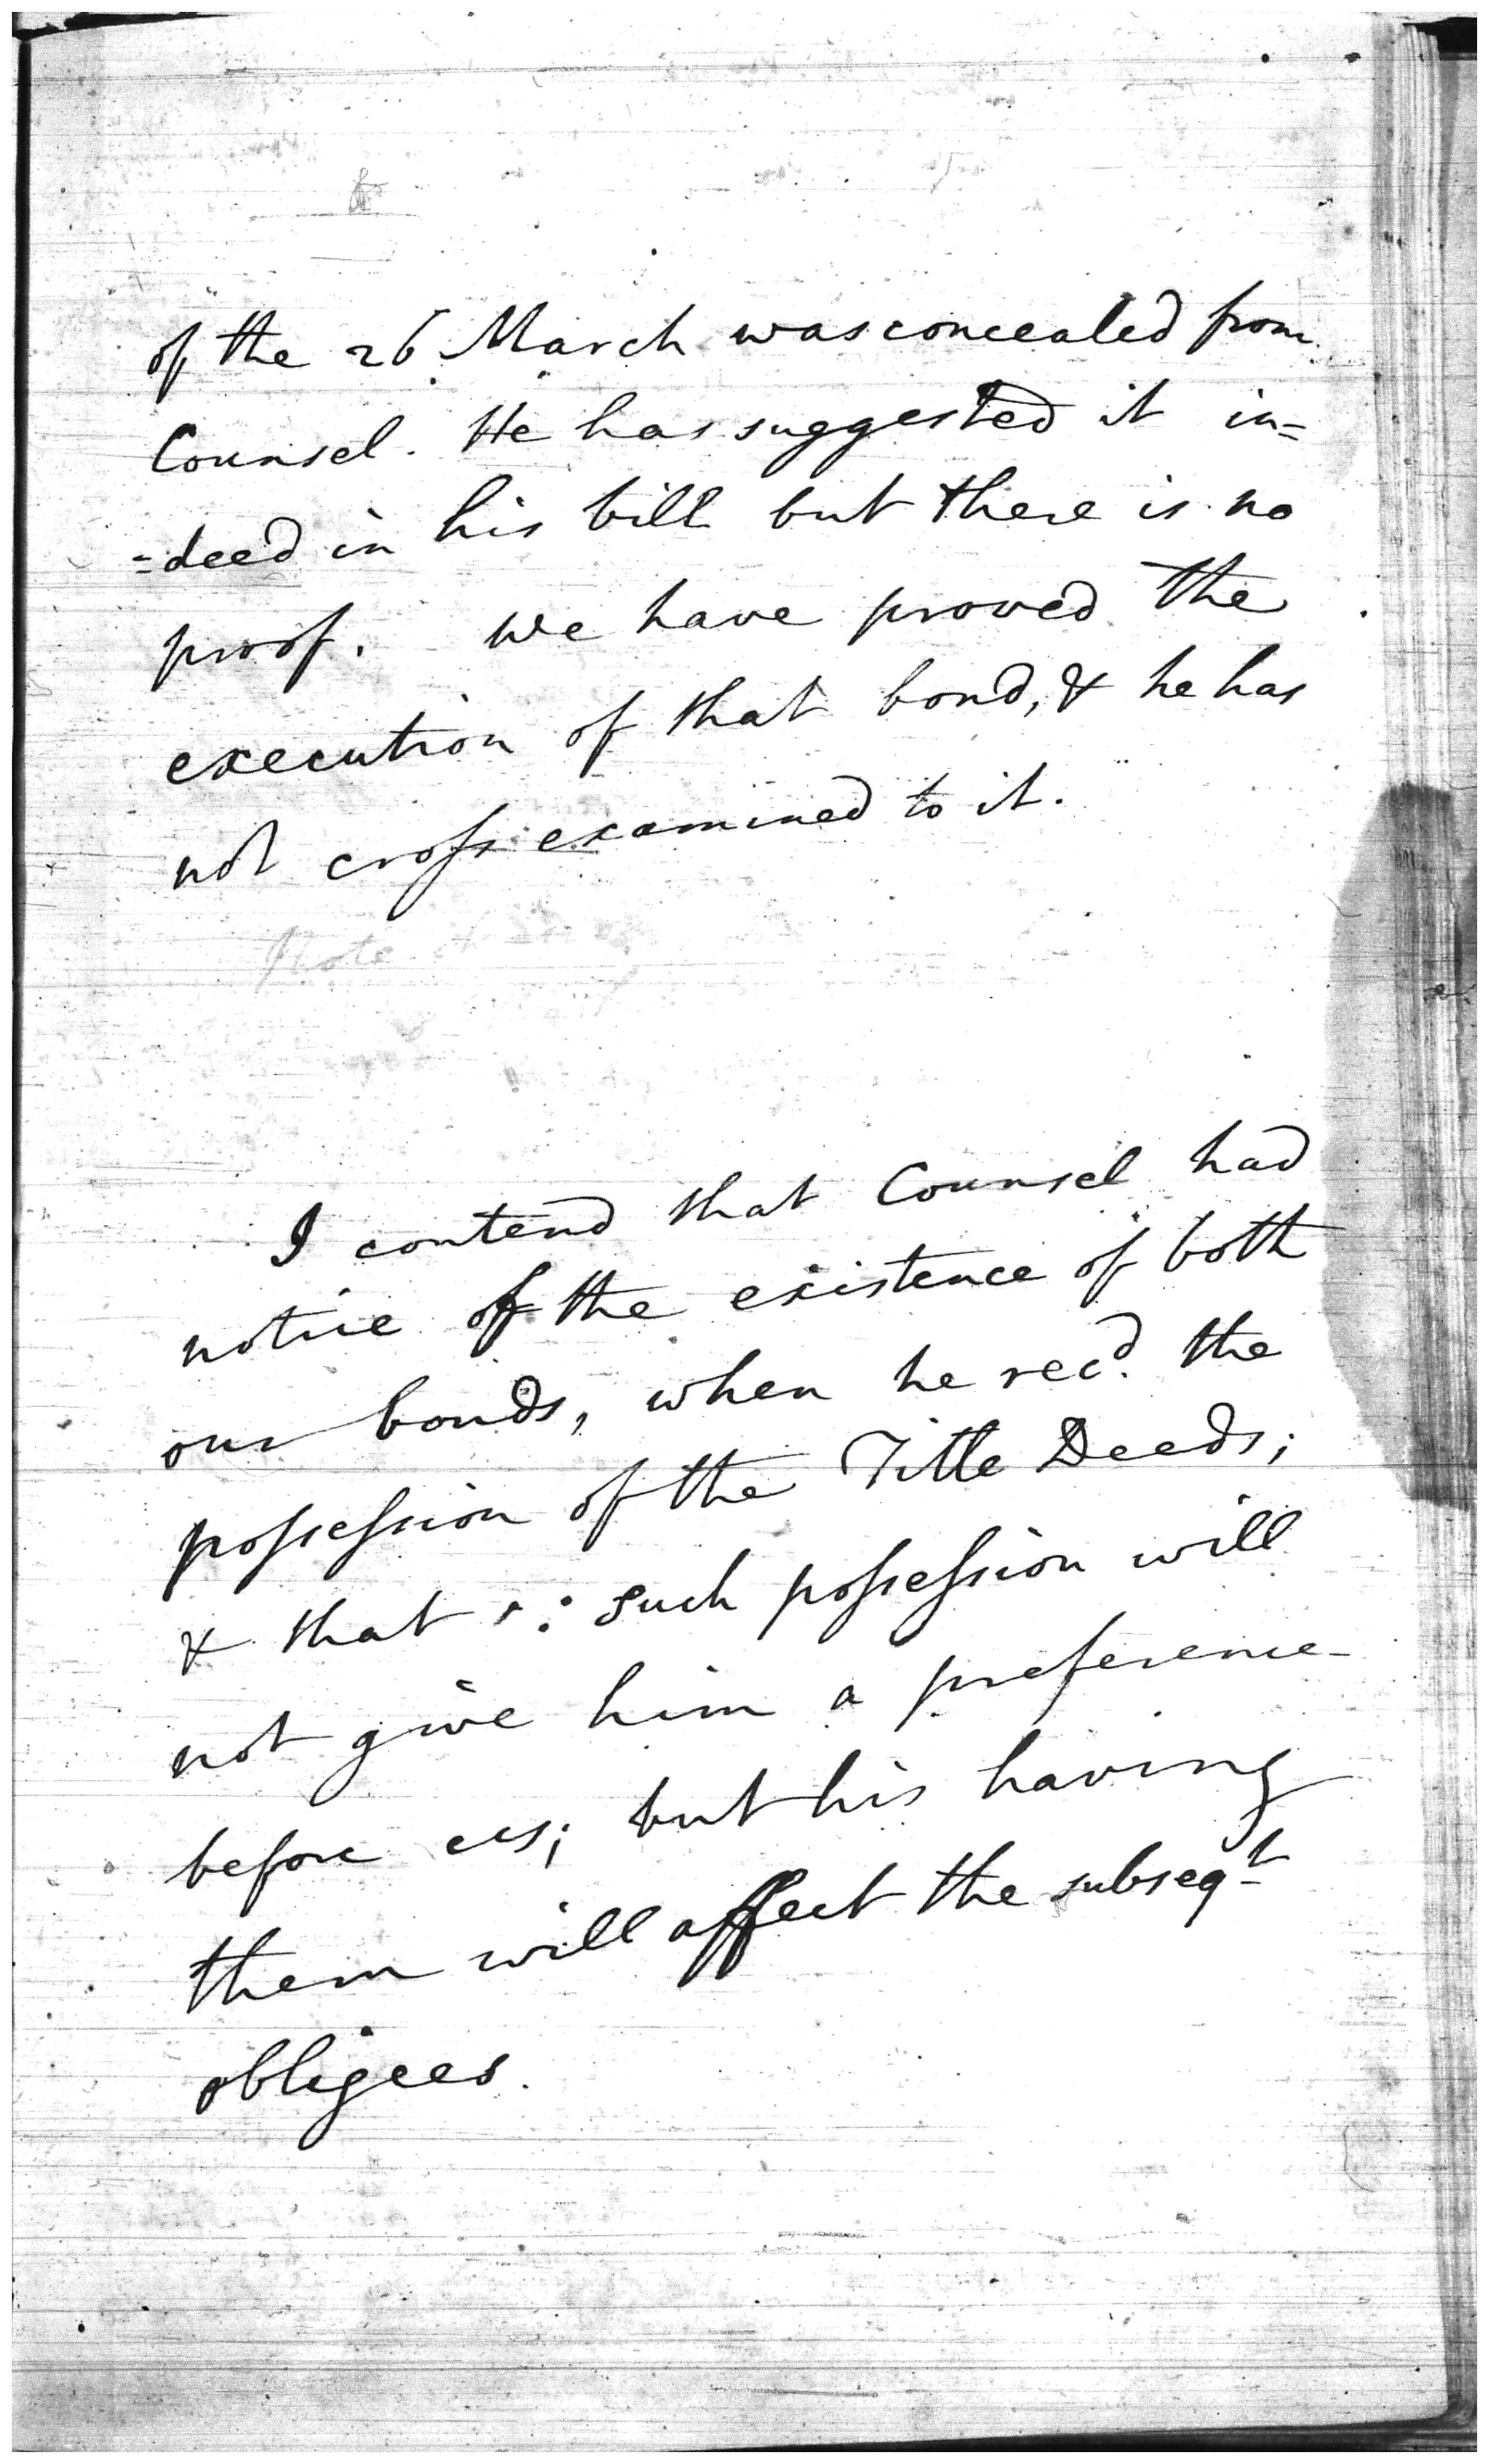 of the 26 March was concealed from
Counsel. He has suggested it in=
=deed in his bill but there is no
proof. We have proved the
execution of that bond, & he has
not cross examined to it.
Note
I contend that Counsel had
notice of the existence of both
our bonds, when he recd. the
possession of the Title Deeds;
& that ∴ such possession will
not give him a preference
before us; but his having
them will affect the subseqt
obligees.